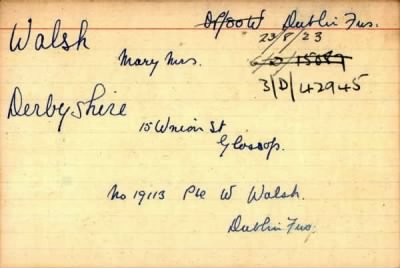 Walsh
Dublin Fus.
23/8/23
Mary Mrs.
3/D/42945
Derbyshire
15 Union St
Glossop.
No 19113 Pte W Walsh.
Dublin Fus.